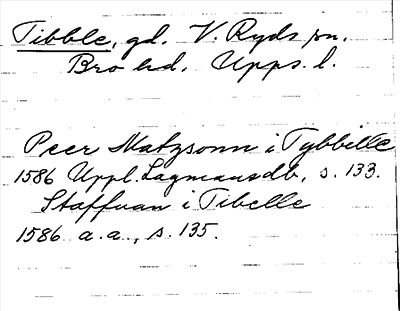 Tibble, gd. V. Ryds sn.
Bro hd. Upps. l.
Peer Matzsonn i Tybbille
1586 Uppl. Lagmansdb, s. 133.
Staffuan i Tibelle
1586 a.a., s. 135.